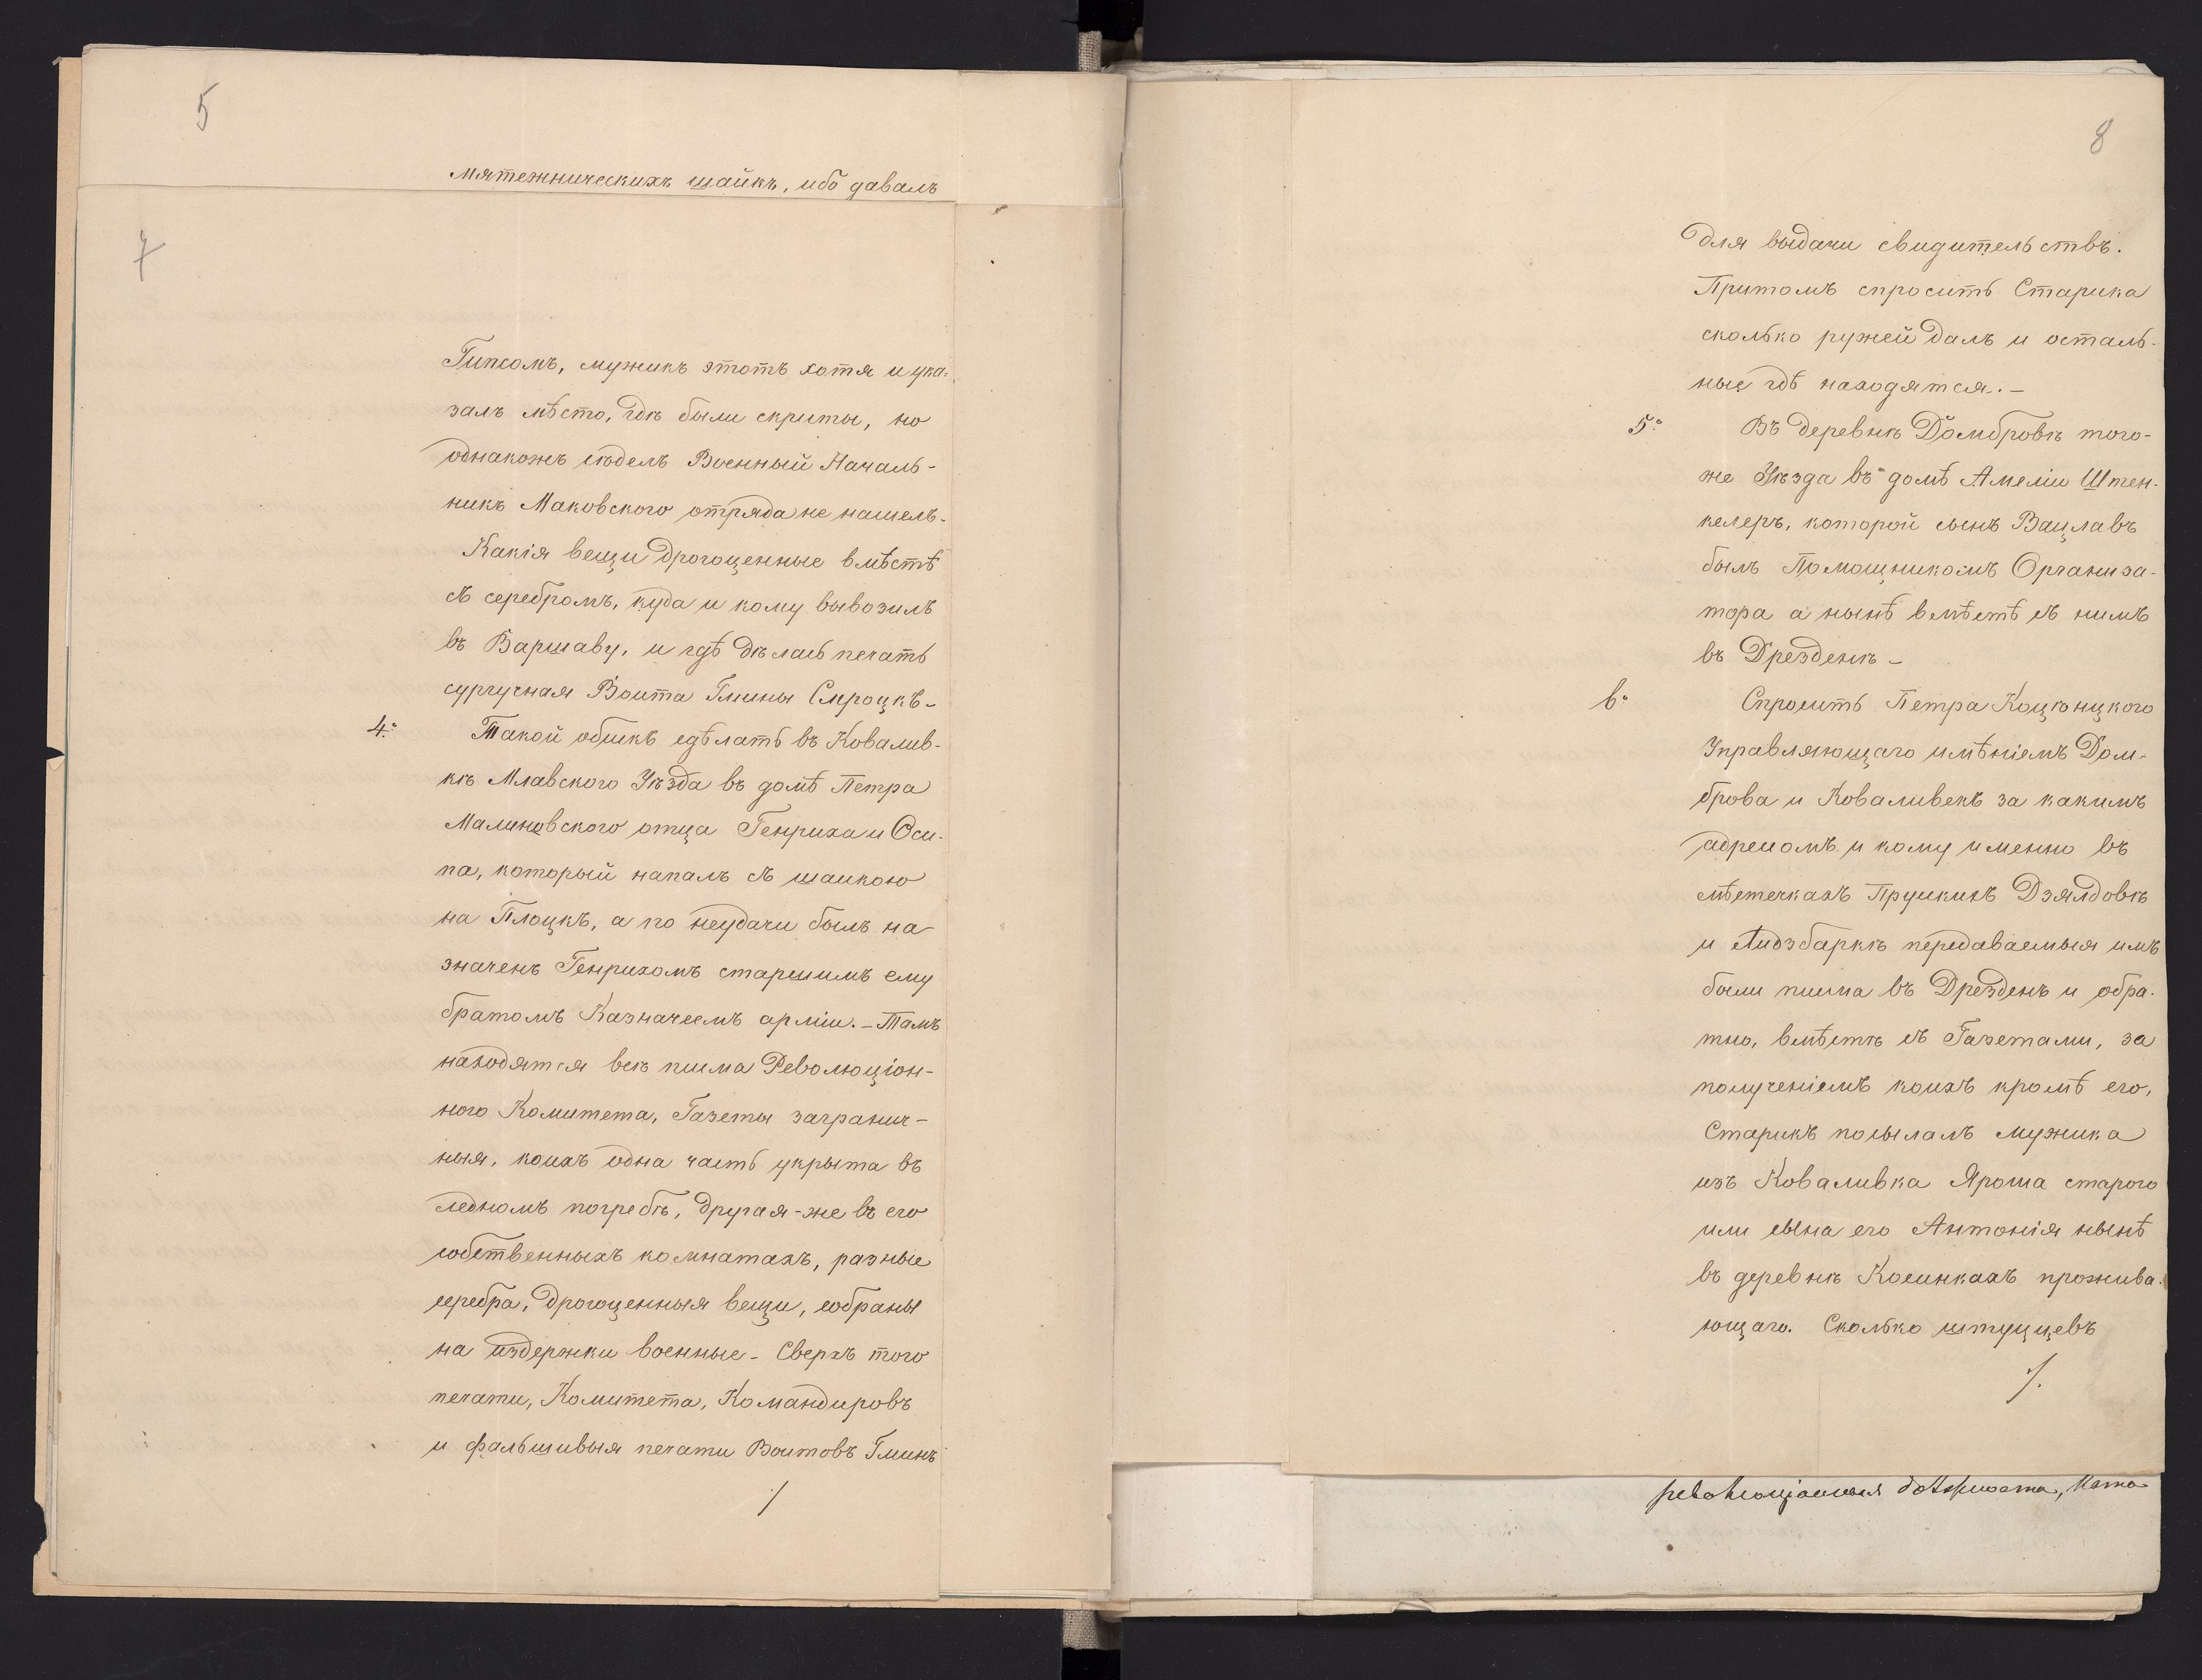 5
мятежническихъ шайкъ, ибо давалъ
7
Гипсомъ, мужикъ этотъ хотя и ука-
залъ мѣсто, гдѣ были скриты, но
однакожъ Военный Началь-
никъ Маковского отряда не нашелъ.
Какія вещи дрогоценные вмѣстѣ
съ серебромъ, куда и кому вывозилъ
въ Варшаву, и гдѣ дѣлась печать
сургучная Воита Гмины Смроцкъ-
4.° Такой обискъ сдѣлать въ Ковалив-
кѣ Млавского Уѣзда въ домѣ Петра
Малиновского отца Генриха и Оси-
па, который напалъ съ шаикою
на Плоцкъ, а по неудачи былъ на-
значенъ Генрихомъ старшимъ ему
братомъ Казначеемъ арміи. - Тамъ
находятся всѣ писма Революціон-
ного Комитета, Газеты загранич-
ныя, коихъ одна часть укрыта въ
ледномъ погребѣ, другая-же въ его
собственныхъ комнатахъ, разные
серебра, дрогоценныя вещи, собраны
на издержки военные - Сверхъ того
печати, Комитета, Командировъ
и фальшивыя печати Воитовъ Гминъ
/
8
для выдачи свидительствъ.
Притомъ спросить Старика
сколько ружей далъ и осталь-
ные гдѣ находятся. -
5.° Въ деревнѣ Домбровѣ того-
же Уѣзда въ домѣ Амеліи Штен-
келеръ, которой сынъ Вацлавъ
былъ Помощникомъ Организа-
тора а нынѣ вмѣстѣ съ нимъ
въ Дрезденѣ -
6.° Спросить Петра Коцѣнцкого
Управляющаго имѣніемъ Дом-
брова и Коваливекъ за какимъ
адресомъ и кому именно въ
мѣстечкахъ Прускихъ Дзялдовѣ
и Лидзбаркѣ передаваемыя имъ
были писма въ Дрезденъ и обра-
тно, вмѣстѣ съ Газетами, за
полученіемъ коихъ кромѣ его,
Старикъ посылалъ мужика
изъ Коваливка Яроша старого
или сына его Антонія нынѣ
въ деревнѣ Косинкахъ прожива-
ющаго. Сколько штуццевъ
/.